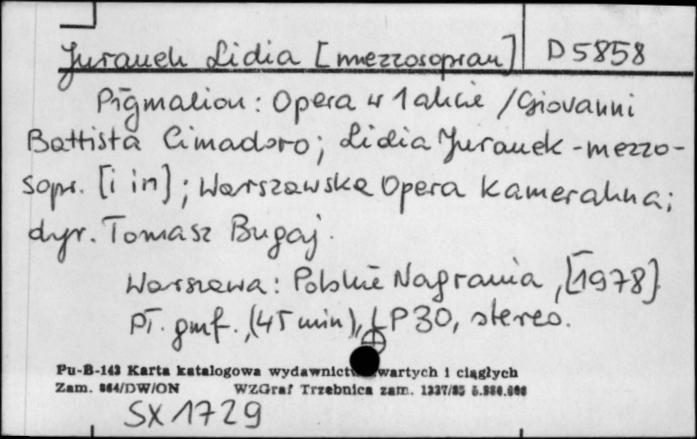 Juranek Lidia [mezzosopran] D 5858
Pigmalion: Opera w 1 akcie / Giovanni
Battista Cimadoro; Lidia Juranek - mezzo-
sopr. [i in]; Warszawska Opera Kameralna;
dyr. Tomasz Bugaj.
Warszawa: Polskie Nagrania, [1978].
Pł. gmf., (45 min), LP 30, stereo.
Pu-B-143 Karta katalogowa wydawnictw zwartych i ciągłych
Zam. 864/DW/ON WZGraf Trzebnica zam. 1337/85
SX 1729